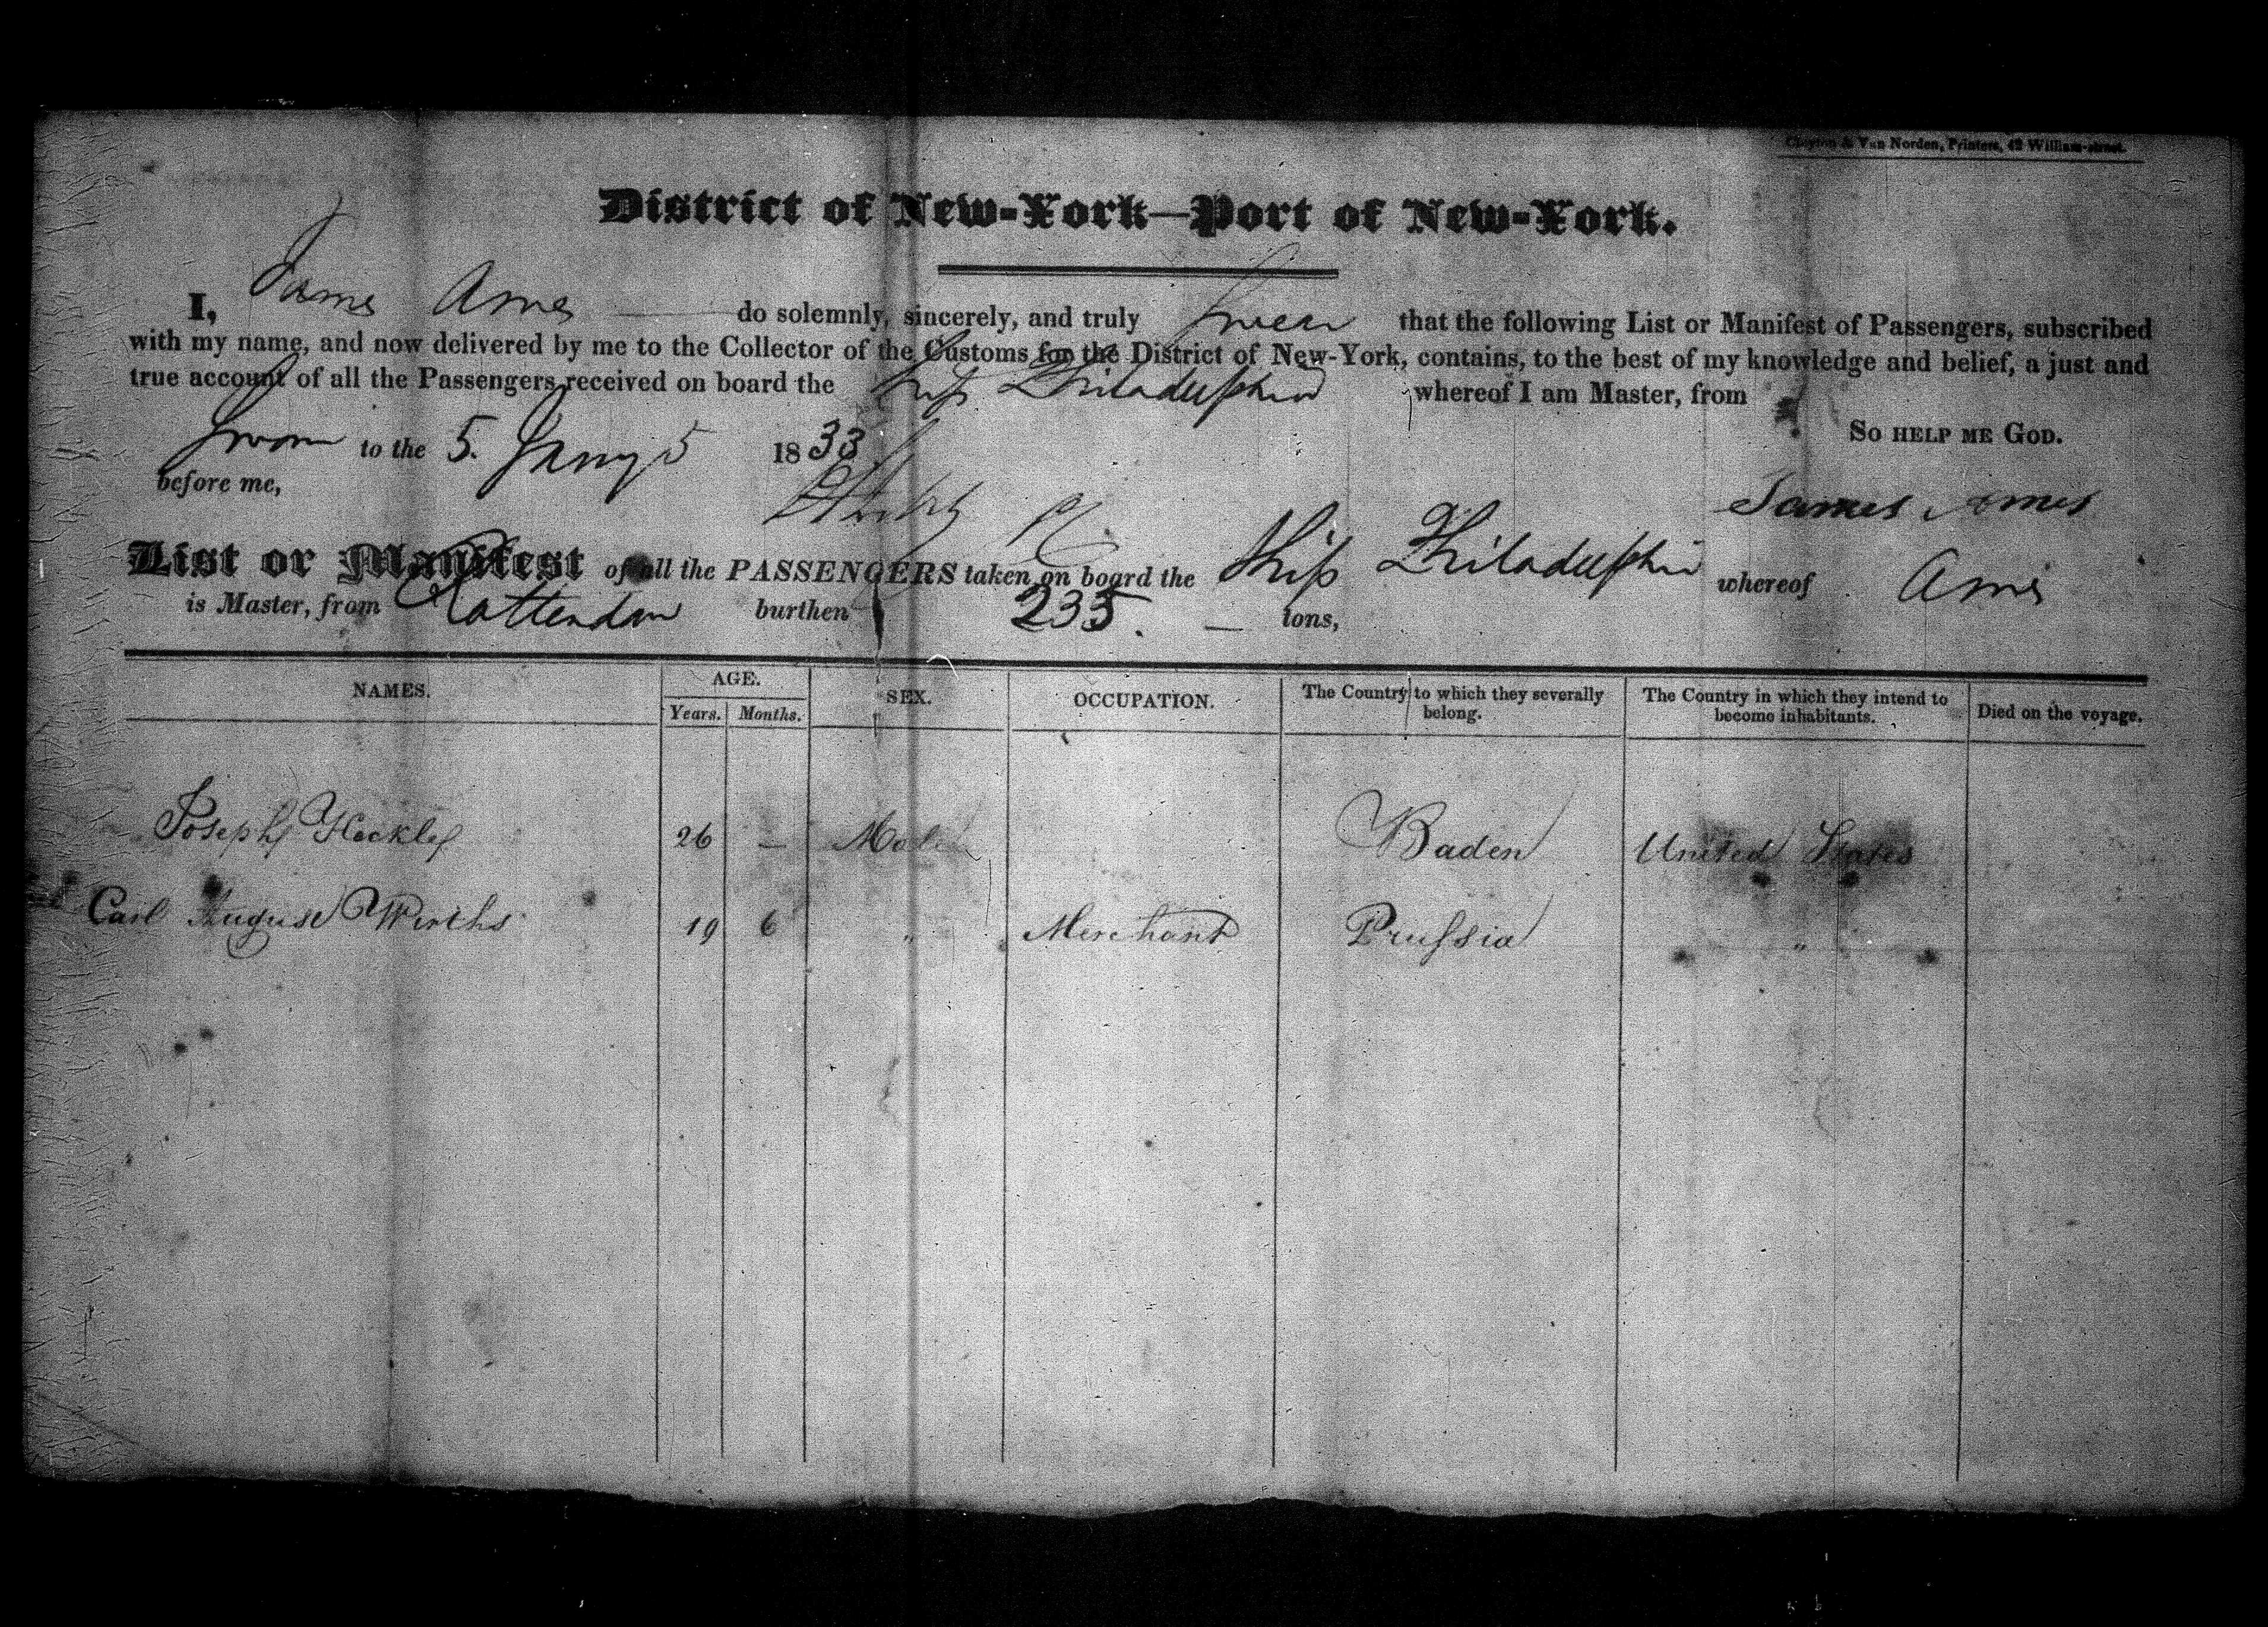 Clayton & Van Norden, Printers, 42 William-street.
District of New-York—Port of New-York.
I, James Ames do solemnly, sincerely, and truly swear that the following List or Manifest of Passengers, subscribed
with my name, and now delivered by me to the Collector of the Customs for the District of New-York, contains, to the best of my knowledge and belief, a just and
true account of all the Passengers received on board the Ship Philadelphia whereof I am Master, from
Sworn to the 5. Jany 1833 So HELP ME GOD.
before me,
James Ames
List or Manifest of all the PASSENGERS taken on board the Ship Philadelphia whereof Ames
is Master, from Rotterdam burthen 235. — tons,
NAMES. AGE. Years. Months. SEX. OCCUPATION. The Country to which they severally belong. The Country in which they intend to become inhabitants. Died on the voyage.
Joseph 26 — Male Baden United States
Carl August Wirths 19 6 " Merchant Prussia "